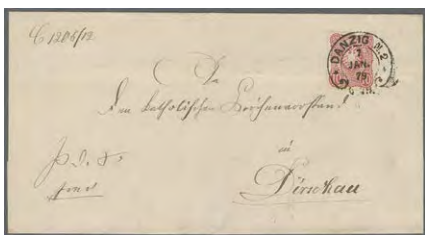 C 1206/12
DANZIG N.2
2
JAN.
79
An
den katholischen Kirchenvorstand
in
Dirschau